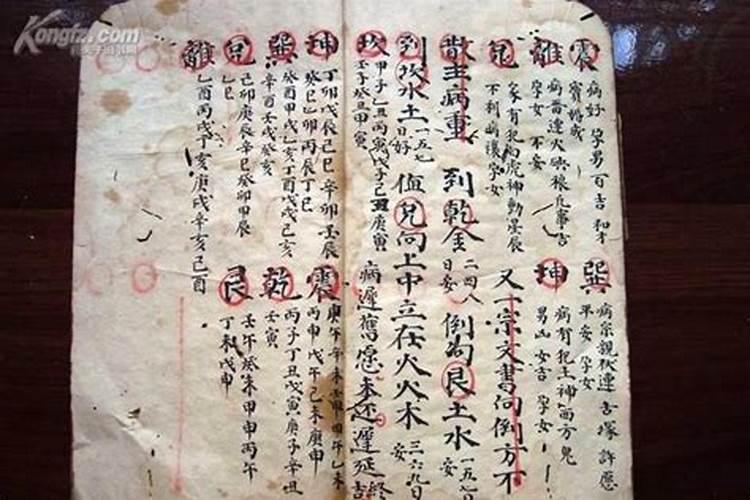 震
病好 孕男 百吉 和才
賣婚成
離
病
孕女 不安
兑
家有犯白虎神動星辰
不利
巽
病宗親
平安 孕女
坤
病有犯土神西方鬼
男凶女吉 孕女
又一宗文書向倒方不
散主病重 到乾金 二四八日安 倒向艮土水 一五七日安
到坎水土 一五七日好 值兑向上中立在火火木 三六九日安
坎
甲子乙丑丙寅戊子己丑庚寅
壬子癸丑甲寅
病遲舊愿未还遲延吉
坤
丁卯戊辰己巳辛卯壬辰
癸巳乙卯丙辰丁巳
震
庚午辛未壬申甲午乙未
丙申戊午己未庚申
巽
癸酉甲戌乙亥丁酉戊戌己亥
辛酉壬戌癸亥
乾
丙子丁丑戊寅庚子辛
壬寅
兑
己卯庚辰辛巳癸卯甲辰
乙巳
艮
壬午癸未甲申丙午
丁未戊申
離
乙酉丙戌丁亥庚戌辛亥己酉
Kongfz.com